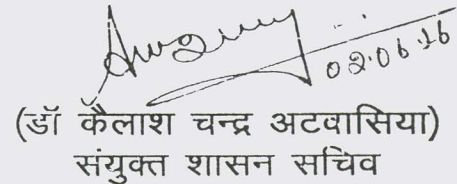 02.06.16
(डॉ कैलाश चन्द्र अटवासिया)
संयुक्त शासन सचिव